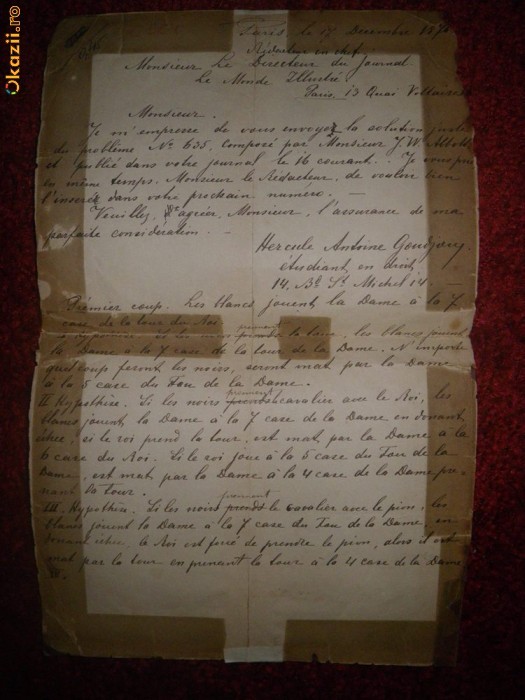 Okazii.ro
Paris, le 17 Décembre
Rédacteur en chef
Monsieur Le Directeur du Journal
Le Monde Illustré
Paris. 13 Quai Voltaire
Monsieur.
Je m'empresse de vous envoyer la solution juste
du problème No 635. composé par Monsieur J. W. Abbott
et publié dans votre journal le 16 courant. Je vous prie
en même temps. Monsieur le Rédacteur, de vouloir bien
l'insérer dans votre prochain numéro. —
Veuillez, agréer, Monsieur, l'assurance de ma
parfaite considération. —
Hercule Antoine
étudiant en droit
14. Bd St Michel 14 —
Premier coup. Les blancs jouent la Dame à la 7
case de la tour du Roi.
Hypothèse. Si les noirs prennent la tour, les blancs jouent
la Dame à la 7 case de la tour de la Dame. N'importe
quel coup feront les noirs, seront mat par la Dame
à la 5 case du Fou de la Dame.
II Hypothèse. Si les noirs prennent cavalier avec le Roi, les
blancs jouent la Dame à la 7 case de la Dame en donnant
échec, si le roi prend la tour, est mat, par la Dame à la
6 case du Roi. Si le roi joue à la 5 case du Fou de la
Dame, est mat, par la Dame à la 4 case de la Dame pre-
nant la tour.
III Hypothèse. Si les noirs prennent le cavalier avec le pion, les
blancs jouent la Dame à la 7 case du Fou de la Dame, en
donnant échec, le Roi est forcé de prendre le pion, alors il est
mat par la tour en prenant la tour à la 4 case de la Dame